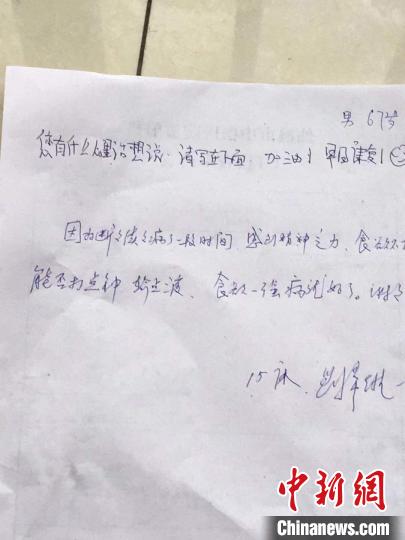 男 67岁
您有什么心里话想说,请写在下面,加油!早日康复!
因为断续病了一段时间,感到精神乏力,食欲不
能否打点针 输点液、食欲一强病就好了。谢
15床
中新网
Chinanews.com